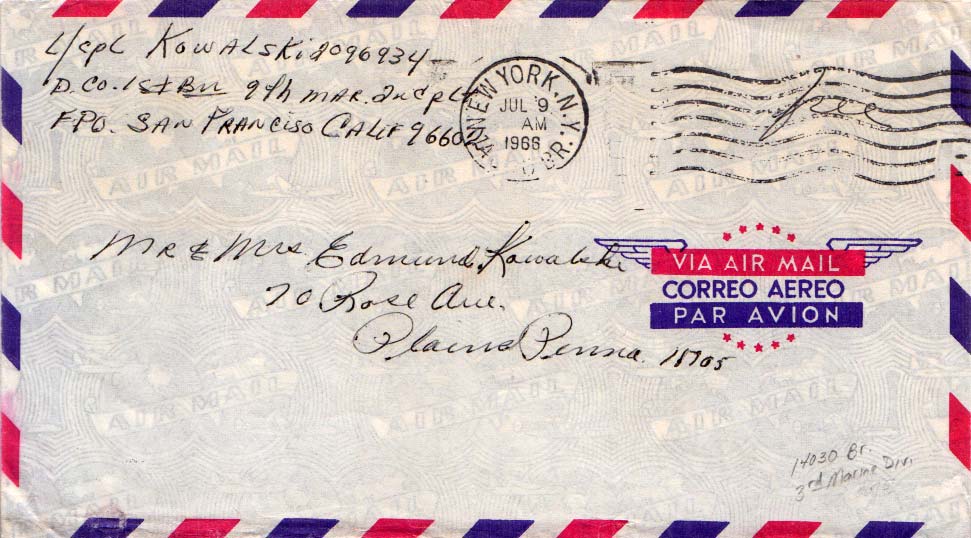 L/cpl Kowalski 2096934
D. Co. 1st Bn 9th Mar. 2nd plt
FPO. San Franciso Calif 96602
NEW YORK, N.Y.
JUL 9
AM
1966
BR.
Free
Mr & Mrs Edmund Kowalski
70 Rose Ave.
Plains Penna. 18705
VIA AIR MAIL
CORREO AEREO
PAR AVION
14030 Br.
3rd Marine Div.
AIR MAIL